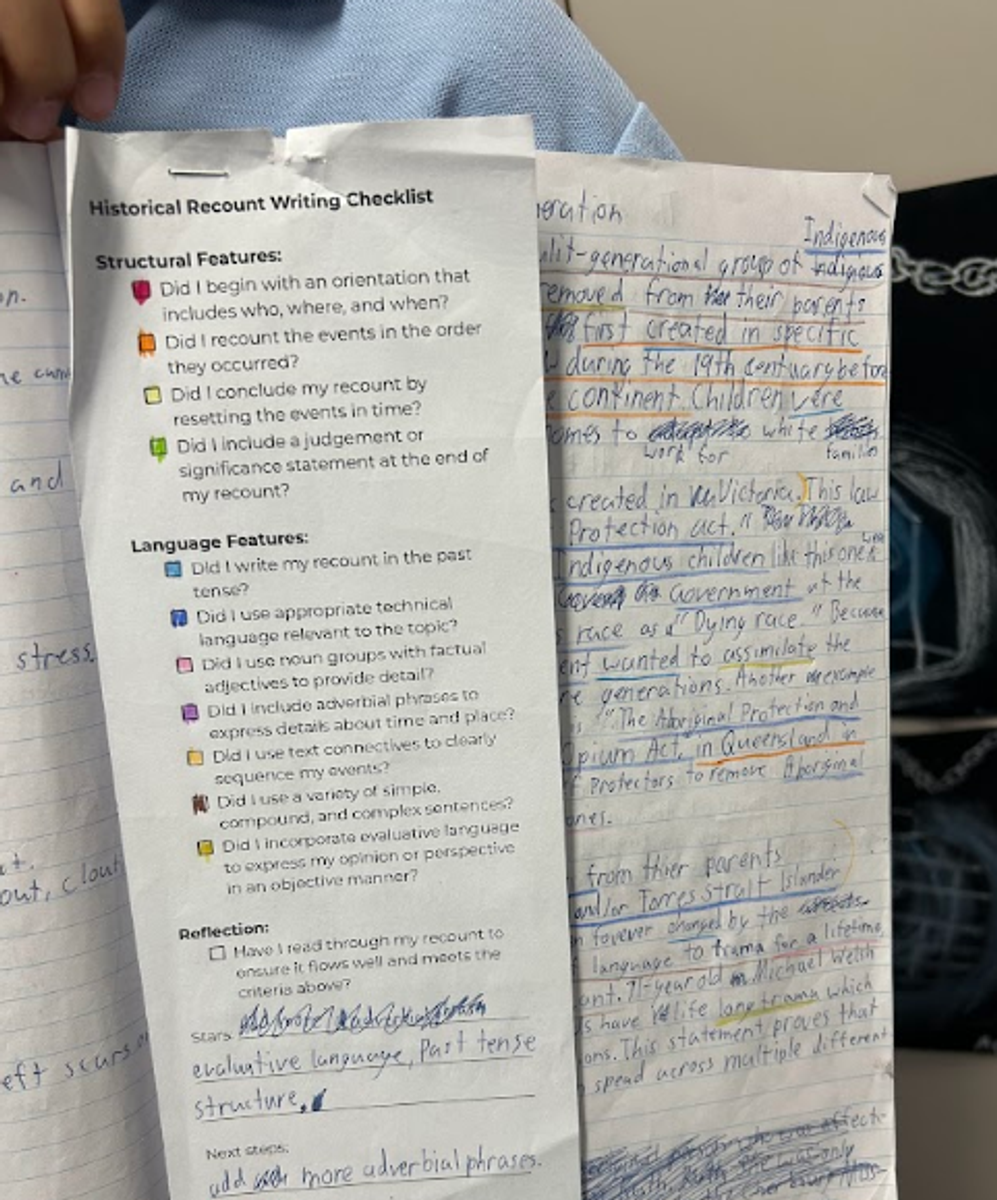 Historical Recount Writing Checklist
Structural Features:
Did I begin with an orientation that
includes who, where, and when?
Did I recount the events in the order
they occurred?
Did I conclude my recount by
resetting the events in time?
Did I include a judgement or
significance statement at the end of
my recount?
Language Features:
Did I write my recount in the past
tense?
Did I use appropriate technical
language relevant to the topic?
Did I use noun groups with factual
adjectives to provide detail?
Did I include adverbial phrases to
express details about time and place?
Did I use text connectives to clearly
sequence my events?
Did I use a variety of simple,
compound, and complex sentences?
Did I incorporate evaluative language
to express my opinion or perspective
in an objective manner?
Reflection:
Have I read through my recount to
ensure it flows well and meets the
criteria above?
Stars
evaluative language, Past tense
structure.
Next steps:
add more adverbial phrases.
on.
and
stress.
out, clout
eft scars
eration
Indigenous
lit-generational group of indigious
emoved from their parents
first created in specific
during the 19th centuary before
continent. Children were
omes to white
work for families
created in Victoria. This law
Protection act."
Indigenous children like this one
Government at the
race as a "Dying race." Because
ent wanted to assimilate the
generations. Another example
is "The Aboriginal Protection and
Opium Act, in Queensland in
f Protectors to remove Aboriginal
ones.
from thier parents
and/or Torres Strait Islander
forever changed by the
language to trama for a lifetime,
ant. 71-year old Michael Welsh
s have life long trama which
ons. This statement proves that
spead across multiple different